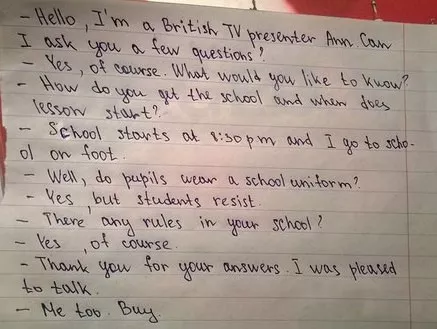 - Hello, I'm a British TV presenter Ann. Can
I ask you a few questions?
- Yes, of course. What would you like to know?
- How do you get the school and when does
lesson start?
- School starts at 8:30 pm and I go to scho-
ol on foot.
- Well, do pupils wear a school uniform?
- Yes, but students resist.
- There any rules in your school?
- Yes, of course.
- Thank you for your answers. I was pleased
to talk.
- Me too. Buy.